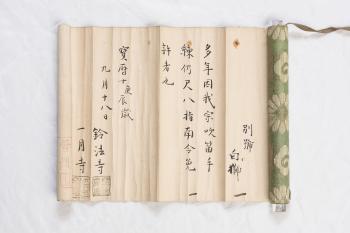 別號
多年因我宗吹笛手
錬仍尺八指南令免
許者也
寶暦十庚辰歳
九月十八日
鈴法寺
一月寺